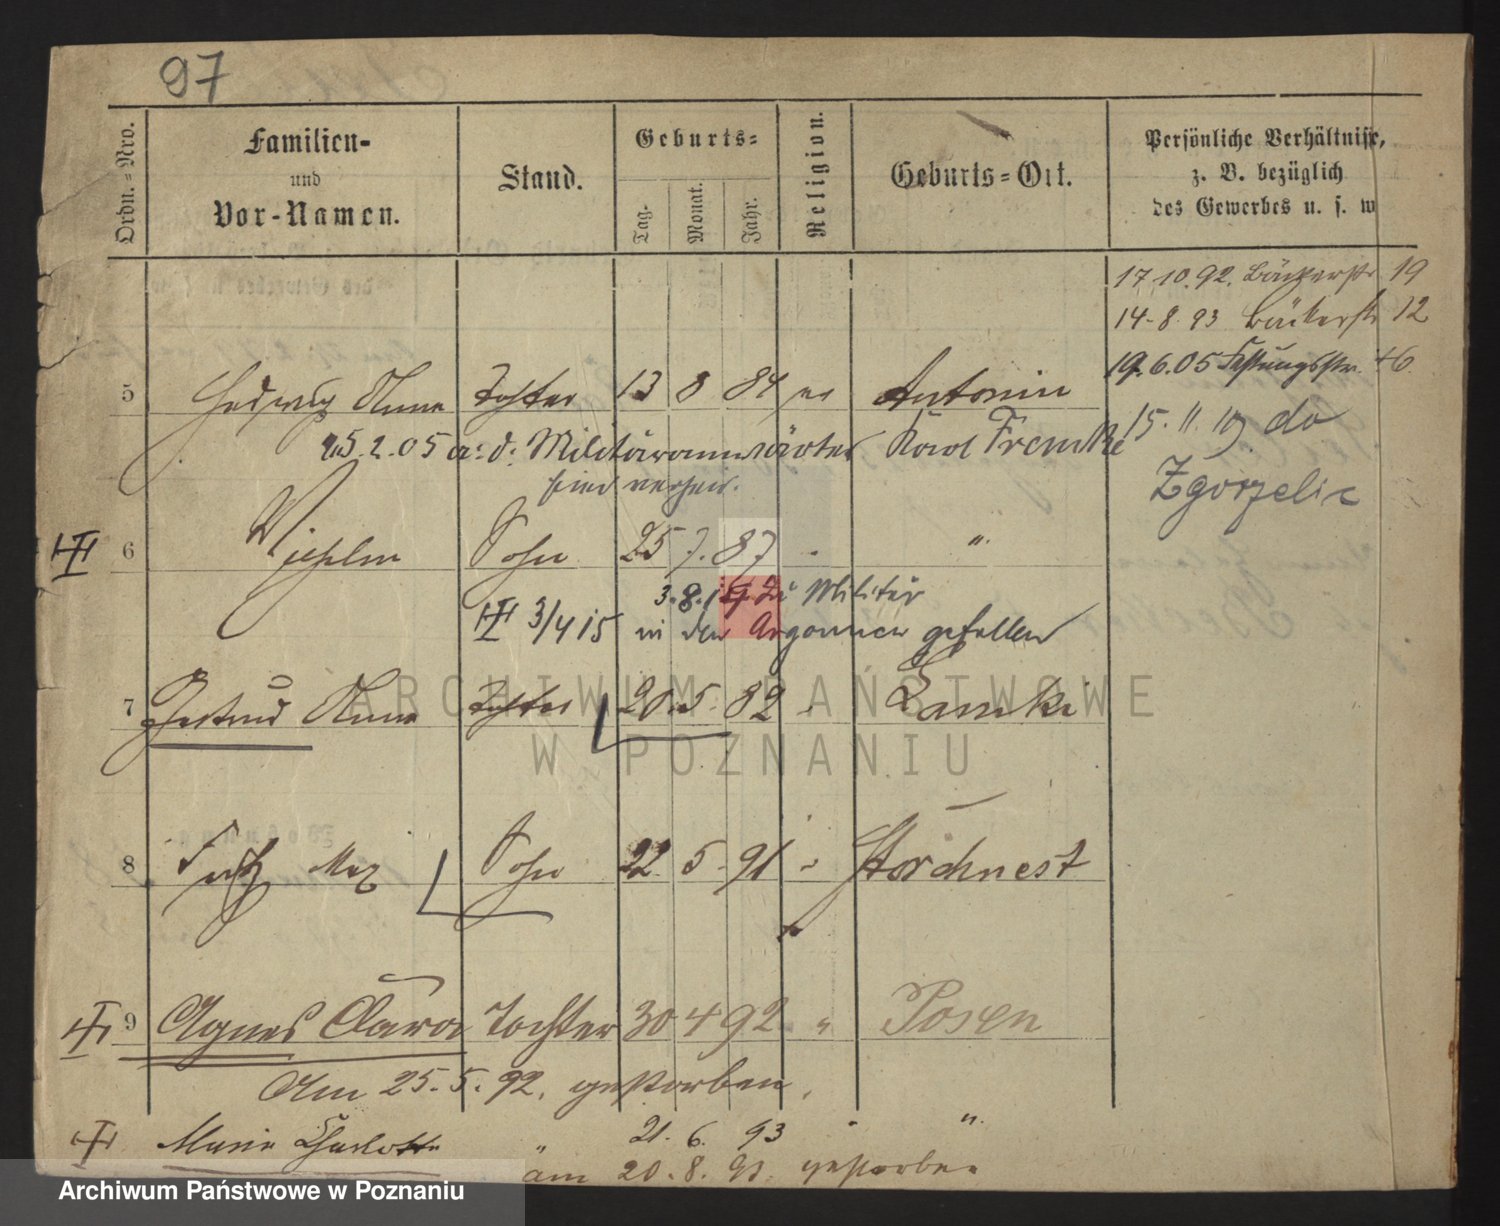 97
Ordn.-Nro.
Familien-
und
Vor-Namen.
Stand.
Geburts-
Tag.
Monat.
Jahr.
Religion.
Geburts-Ort.
Persönliche Verhältnisse,
z. B. bezüglich
des Gewerbes u. s. w
17.10.92. Bäckerstr 19
14.8.93 Bäckerstr 12
19.6.05 Festungsstr. 46
5 Hedwig Anna Tochter 13 8 84 ev Antonin
15. 11. 19 do
Zgorzelic
25.2.05 a. d. Militäranwärter Karl Fremke
6 Wilhelm Sohn 25 7. 87 " "
3.8.14 zu Militär
3/4 15 in den Argonnen gefallen
7 Gertrud Anna Tochter 20.5. 82 " Lamki
8 Fritz Max Sohn 22. 5. 91 " Storchnest
9 Agnes Clara Tochter 30 4 92 " Posen
Am 25.5.92. gestorben.
Marie Charlotte " 21. 6. 93 " "
am 20.8.93. gestorben
ARCHIWUM PAŃSTWOWE
W POZNANIU
Archiwum Państwowe w Poznaniu